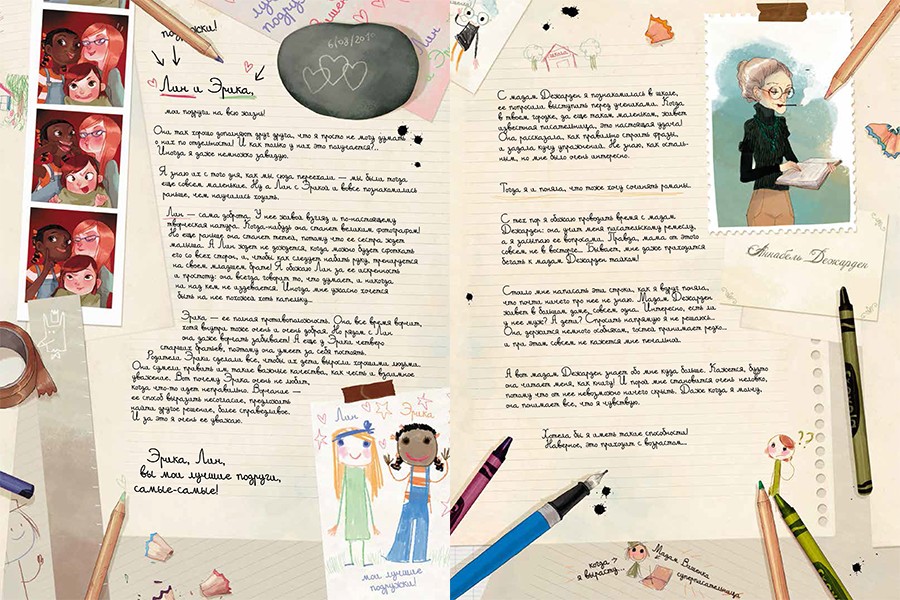 подружки!
Лин и Эрика,
мои подруги на всю жизнь!
Они так хорошо дополняют друг друга, что я просто не могу думать
о них по отдельности! И как только у них это получается?..
Иногда я даже немножко завидую.
Я знаю их с того дня, как мы сюда переехали — мы были тогда
еще совсем маленькие. Ну а Лин с Эрикой и вовсе познакомились
раньше, чем научились ходить.
Лин — сама доброта. У нее живой взгляд и по-настоящему
творческая натура. Когда-нибудь она станет великим фотографом!
Но еще раньше она станет тетей, потому что ее сестра ждет
малыша. А Лин ждет не дождется, когда можно будет сфоткать
его со всех сторон, и, чтобы как следует набить руку, тренируется
на своем младшем брате! Я обожаю Лин за ее искренность
и простоту: она всегда говорит то, что думает, и никогда
ни над кем не издевается. Иногда мне ужасно хочется
быть на нее похожей хоть капельку...
Эрика — ее полная противоположность. Она все время ворчит,
хотя внутри тоже очень и очень добрая. Но рядом с Лин
она даже ворчать забывает! А еще у Эрики четверо
старших братьев, потому она умеет за себя постоять.
Родители Эрики сделали все, чтобы их дети выросли хорошими людьми.
Они сумели привить им такие важные качества, как честь и взаимное
уважение. Вот почему Эрика очень не любит,
когда что-то идет неправильно. Ворчание —
ее способ выразить несогласие, предложить
найти другое решение, более справедливое.
И за это я очень ее уважаю.
Эрика, Лин,
вы мои лучшие подруги,
самые-самые!
6/08/2010
Лин
Эрика
мои лучшие
подружки!
С мадам Дежарден я познакомилась в школе,
ее попросили выступить перед учениками. Когда
в твоем городке, да еще таком маленьком, живет
известная писательница, это настоящая удача!
Она рассказала, как правильно строить фразы,
и задала кучу упражнений. Не знаю, как осталь-
ным, но мне было очень интересно.
Тогда я и поняла, что тоже хочу сочинять романы.
С тех пор я обожаю проводить время с мадам
Дежарден: она учит меня писательскому ремеслу,
а я засыпаю ее вопросами. Правда, мама от этого
совсем не в восторге... Бывает, мне даже приходится
бегать к мадам Дежарден тайком!
Стоило мне написать эти строки, как я вдруг поняла,
что почти ничего про нее не знаю. Мадам Дежарден
живет в большом доме, совсем одна. Интересно, есть ли
у нее муж? А дети? Спросить напрямую я не решаюсь...
Она держится немного особняком, гостей принимает редко...
и при этом совсем не кажется мне печальной.
А вот мадам Дежарден знает обо мне куда больше. Кажется, будто
она читает меня, как книгу! И порой мне становится очень неловко,
потому что от нее невозможно ничего скрыть. Даже когда я молчу,
она понимает все, что я чувствую.
Хотела бы я иметь такие способности!
Наверное, это приходит с возрастом...
Аннабель Дежарден
??
когда
я вырасту...
Мадам Вишенка
суперписательница